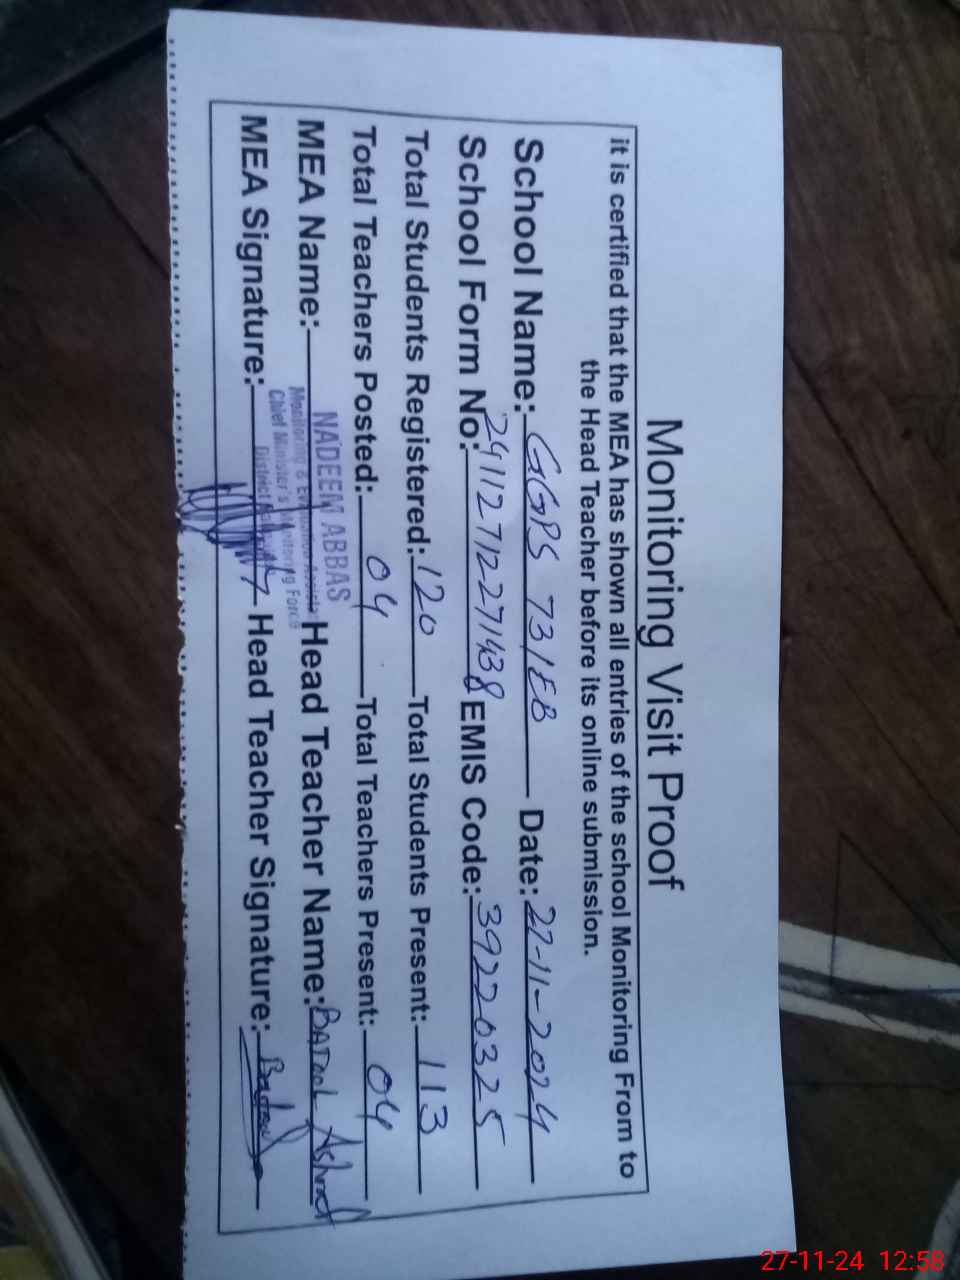 Monitoring Visit Proof
it is certified that the MEA has shown all entries of the school Monitoring From to
the Head Teacher before its online submission.
School Name: GGPS 73/EB Date: 27-11-2024
School Form No: 24112712271438 EMIS Code: 39220325
Total Students Registered: 120 Total Students Present: 113
Total Teachers Posted: 04 Total Teachers Present: 04
MEA Name: NADEEM ABBAS Head Teacher Name: BATOOL Ashraf
Monitoring & Evaluation Assista
Chief Minister's Monitoring Force
District
MEA Signature: Head Teacher Signature:
27-11-24 12:58